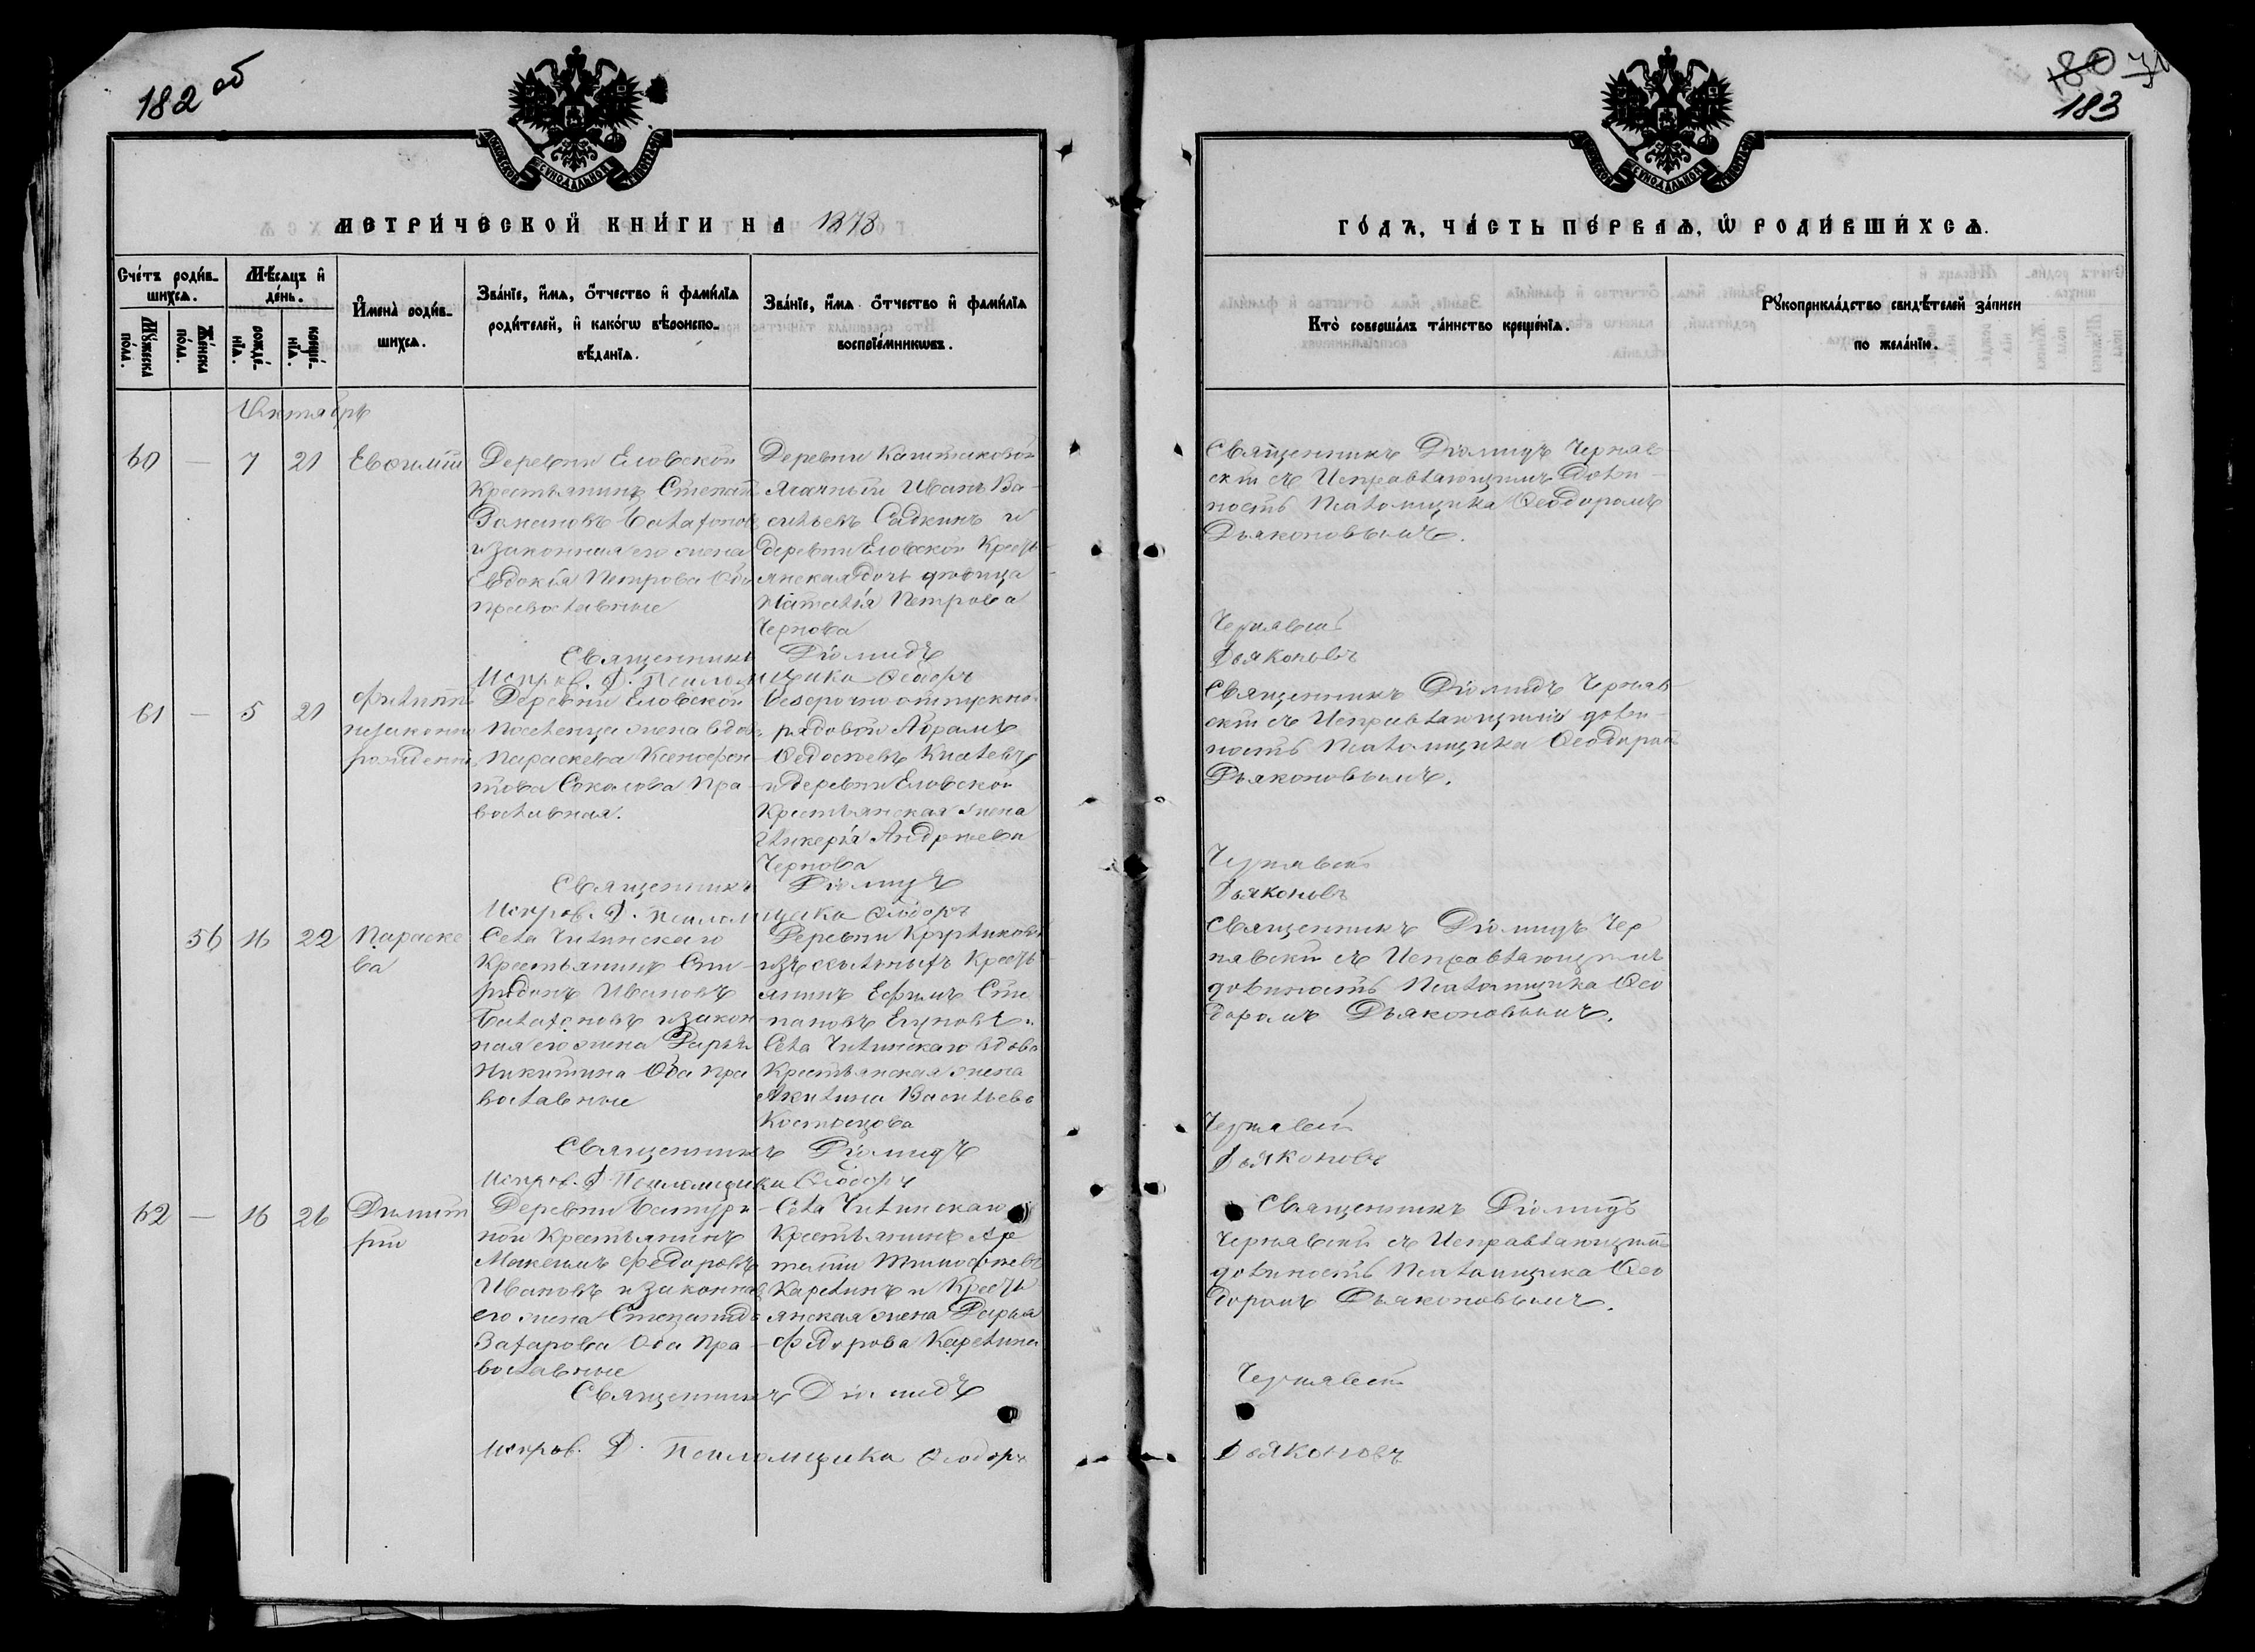 182 об
МЕТРИ́ЧЕСКОЙ КНИ́ГИ НА 1878
Сче́тъ роди́в-
шихсѧ.
Мѣ́сѧцъ и҆
де́нь.
Мꙋ́жеска
по́ла.
Же́нска
по́ла.
рожде́-
нїѧ.
креще́-
нїѧ.
И҆мена̀ роди́в-
шихсѧ.
Зва́нїе, и҆́мѧ, ѻ҆́тчество и҆ фами́лїѧ
роди́телей, и҆ како́гѡ вѣроиспо-
вѣ́данїѧ.
Зва́нїе, и҆́мѧ ѻ҆́тчество и҆ фами́лїѧ
воспрїе́мникѡвъ.
Октябрь
60 — 7 21 Евѳимій
Деревни Еловской
Крестьянинъ Степанъ
Балахонов
и законная его жена
Евдокія Петрова Оба
православные
Деревни
Иванъ Ва-
сильевъ Садкинъ и
деревни Еловской Кресть
янская дочь дѣвица
Наталія Петрова
Чернова
Священникъ Діомидъ
Исправ. Д. Псаломщика Ѳеодоръ
61 — 5 21
Филиппъ
незаконно
рожденный
Деревни Еловской
Поселенца жена вдова
Параскева Ксенофон
това Соколова Пра
вославная.
Безсрочно отпускно
рядовой Абрамъ
Ѳедосѣевъ
и деревни Еловской
Крестьянская жена
Гликерія Андрѣева
Чернова
Священникъ Діомидъ
Исправ. Д. Псаломщика Ѳеодоръ
56 16 22 Параске
ва
Села Читинскаго
Крестьянинъ Спи-
ридонъ Ивановъ
Балахоновъ и закон
ная его жена Дарья
Никитина Оба пра
вославные
Деревни Кругликовой
изъ ссыльныхъ Кресть
янинъ Ефимъ Сте
пановъ Егуновъ и
Села Читинскаго вдова
Крестьянская жена
Акилина Васильева
Костенцова
Священникъ Діомидъ
Исправ. Д. Псаломщика Ѳеодоръ
62 — 16 26 Димит
рій
Деревни Батури
ной Крестьянинъ
Максимъ Федоровъ
Ивановъ и законная
его жена Степанида
Захарова Оба Пра
вославные
Села Читинскаго
Крестьянинъ Ар
темій Тимофѣевъ
Карелинъ и Кресть
янская жена Дарья
Федорова Карелина
Священникъ Діомидъ
Исправ. Д. Псаломщика Ѳеодоръ
180
183
ГО́ДЪ, ЧА́СТЬ ПЕ́РВАѦ, Ѡ҆ РОДИ́ВШИХСѦ.
Кто̀ соверша́лъ та́инство креще́нїѧ.
Рꙋкоприкла́дство свидѣ́телей за́писи
по жела́нїю.
Священникъ Діомидъ Черняв
скій съ Исправляющимъ Долж-
ность Псаломщика Ѳеодоромъ
Дьяконовымъ.
Чернявскій
Дьяконовъ
Священникъ Діомидъ Черняв
скій съ Исправляющимъ долж-
ность Псаломщика Ѳеодоромъ
Дьяконовымъ.
Чернявскій
Дьяконовъ
Священникъ Діомидъ Чер
нявскій съ Исправляющимъ
должность Псаломщика Ѳео
доромъ Дьяконовымъ.
Чернявскій
Дьяконовъ
Священникъ Діомидъ
Чернявскій съ Исправляющимъ
должность Псаломщика Ѳео
доромъ Дьяконовымъ.
Чернявскій
Дьяконовъ